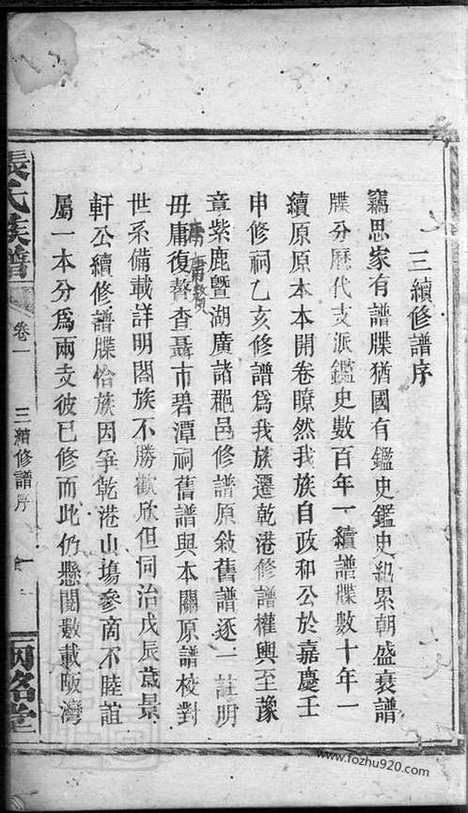 三續修譜序
竊思家有譜牒猶國有鑑史鑑史紀累朝盛衰譜
牒分歷代支派鑑史數百年一續譜牒數十年一
續原原本本開卷瞭然我族自政和公於嘉慶壬
申修祠乙亥修譜爲我族遷乾港修譜權輿至豫
章紫鹿暨湖廣諸郡邑修譜原敘舊譜逐一註明
毋庸復贅查聶市碧潭祠舊譜與本關原譜校對
世系備載詳明閤族不勝歡欣但同治戊辰歲景
軒公續修譜牒恰族因爭乾港山塲參商不睦誼
屬一本分爲兩支彼已修而此仍懸閣數載畈灣
張氏族譜
卷一
三續修譜序
一
堂
www.fozhu920.com